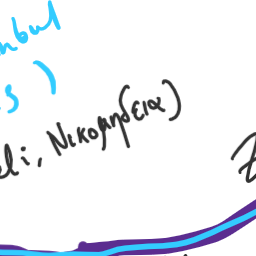 nbul
s)
eli, Νικομηδεια)
Z